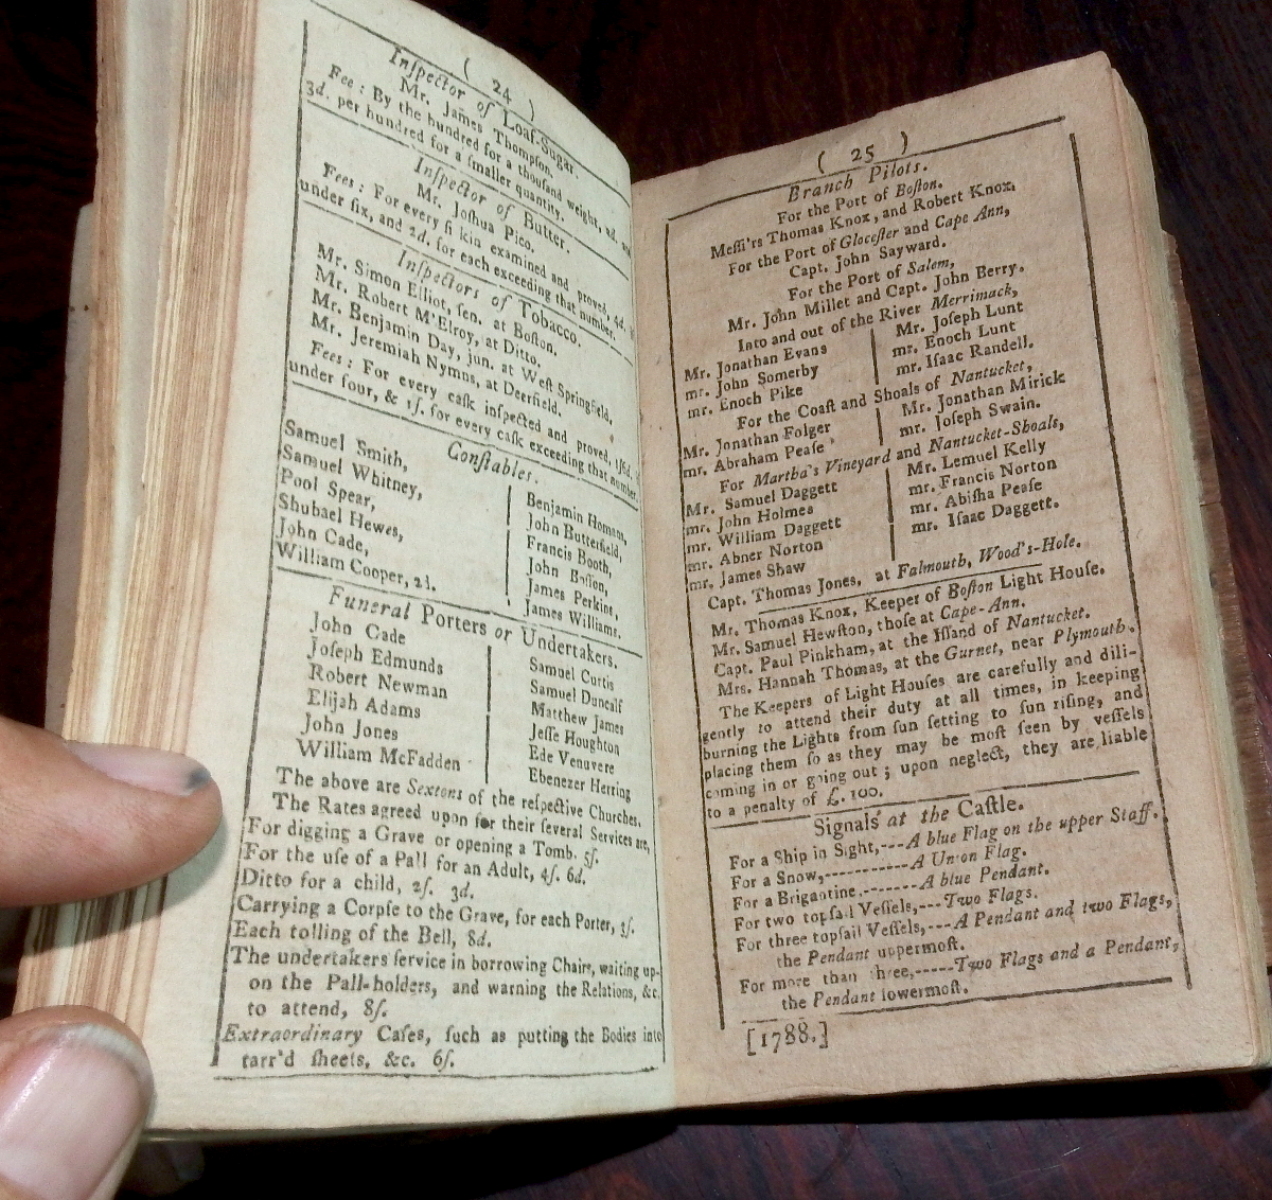 ( 24 )
Inſpector of Loaf-Sugar.
Mr. James Thompſon.
Fee : By the hundred for a thouſand weight, 2d. and
3d. per hundred for a ſmaller quantity.
Inſpector of Butter.
Mr. Joſhua Pico.
Fees : For every fi kin examined and proved, 4d. if
under ſix, and 2d. for each exceeding that number.
Inſpectors of Tobacco.
Mr. Simon Elliot, ſen. at Boſton.
Mr. Robert M'Elroy, at Ditto.
Mr. Benjamin Day, jun. at Weſt Springfield.
Mr. Jeremiah Nymns, at Deerfield.
Fees : For every caſk inſpected and proved, 1ſ6d. if
under four, & 1ſ. for every caſk exceeding that number.
Conſtables.
Samuel Smith,
Samuel Whitney,
Pool Spear,
Shubael Hewes,
John Cade,
William Cooper, 2d.
Benjamin Homans,
John Butterfield,
Francis Booth,
John Boſton,
James Perkins,
James Williams.
Funeral Porters or Undertakers.
John Cade
Joſeph Edmunds
Robert Newman
Elijah Adams
John Jones
William McFadden
Samuel Curtis
Samuel Duncalf
Matthew James
Jeſſe Houghton
Ede Venuvere
Ebenezer Herring
The above are Sextons of the reſpective Churches.
The Rates agreed upon for their ſeveral Services are,
For digging a Grave or opening a Tomb. 5ſ.
For the uſe of a Pall for an Adult, 4ſ. 6d.
Ditto for a child, 2ſ. 3d.
Carrying a Corpſe to the Grave, for each Porter, 3ſ.
Each tolling of the Bell, 8d.
The undertakers ſervice in borrowing Chairs, waiting up-
on the Pall-holders, and warning the Relations, &c.
to attend, 8ſ.
Extraordinary Caſes, ſuch as putting the Bodies into
tarr'd ſheets, &c. 6ſ.
( 25 )
Branch Pilots.
For the Port of Boſton.
Meſſi'rs Thomas Knox, and Robert Knox,
For the Port of Gloceſter and Cape Ann,
Capt. John Sayward.
For the Port of Salem,
Mr. John Millet and Capt. John Berry.
Into and out of the River Merrimack,
Mr. Jonathan Evans
mr. John Somerby
mr. Enoch Pike
Mr. Joſeph Lunt
mr. Enoch Lunt
mr. Iſaac Randell.
For the Coaſt and Shoals of Nantucket,
Mr. Jonathan Folger
mr. Abraham Peaſe
Mr. Jonathan Mirick
mr. Joſeph Swain.
For Martha's Vineyard and Nantucket-Shoals,
Mr. Samuel Daggett
mr. John Holmes
mr. William Daggett
mr. Abner Norton
mr. James Shaw
Mr. Lemuel Kelly
mr. Francis Norton
mr. Abiſha Peaſe
mr. Iſaac Daggett.
Capt. Thomas Jones, at Falmouth, Wood's-Hole.
Mr. Thomas Knox, Keeper of Boſton Light Houſe.
Mr. Samuel Hewſton, thoſe at Cape-Ann.
Capt. Paul Pinkham, at the Iſſand of Nantucket.
Mrs. Hannah Thomas, at the Gurnet, near Plymouth.
The Keepers of Light Houſes are carefully and dili-
gently to attend their duty at all times, in keeping
burning the Lights from ſun ſetting to ſun riſing, and
placing them ſo as they may be moſt ſeen by veſſels
coming in or going out ; upon neglect, they are liable
to a penalty of £. 100.
Signals at the Caſtle.
For a Ship in Sight,---A blue Flag on the upper Staff.
For a Snow,-----------A Union Flag.
For a Brigantine.-------A blue Pendant.
For two topſail Veſſels,---Two Flags.
For three topſail Veſſels,---A Pendant and two Flags,
the Pendant uppermoſt.
For more than three,-----Two Flags and a Pendant,
the Pendant lowermoſt.
[1788.]